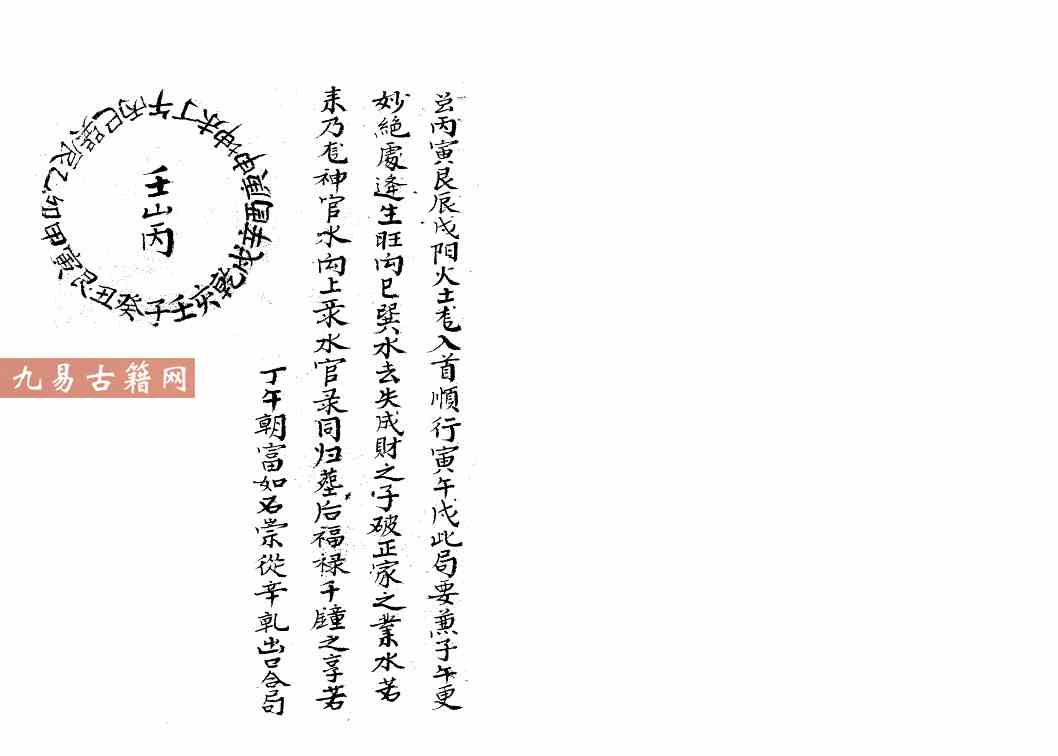 丙寅艮辰戌阳火土龙入首顺行寅午戌此局要兼子午更
妙绝處逢生旺向巳巽水去失成财之子破正家之業水若
来乃龙神官水向上录水官录同归墓后福禄千鐘之享若
丁午朝富如石崇從辛乹出口合局
壬山丙
子癸丑艮寅甲卯乙辰巽巳丙午丁未坤申庚酉辛戌乾亥壬
九易古籍网